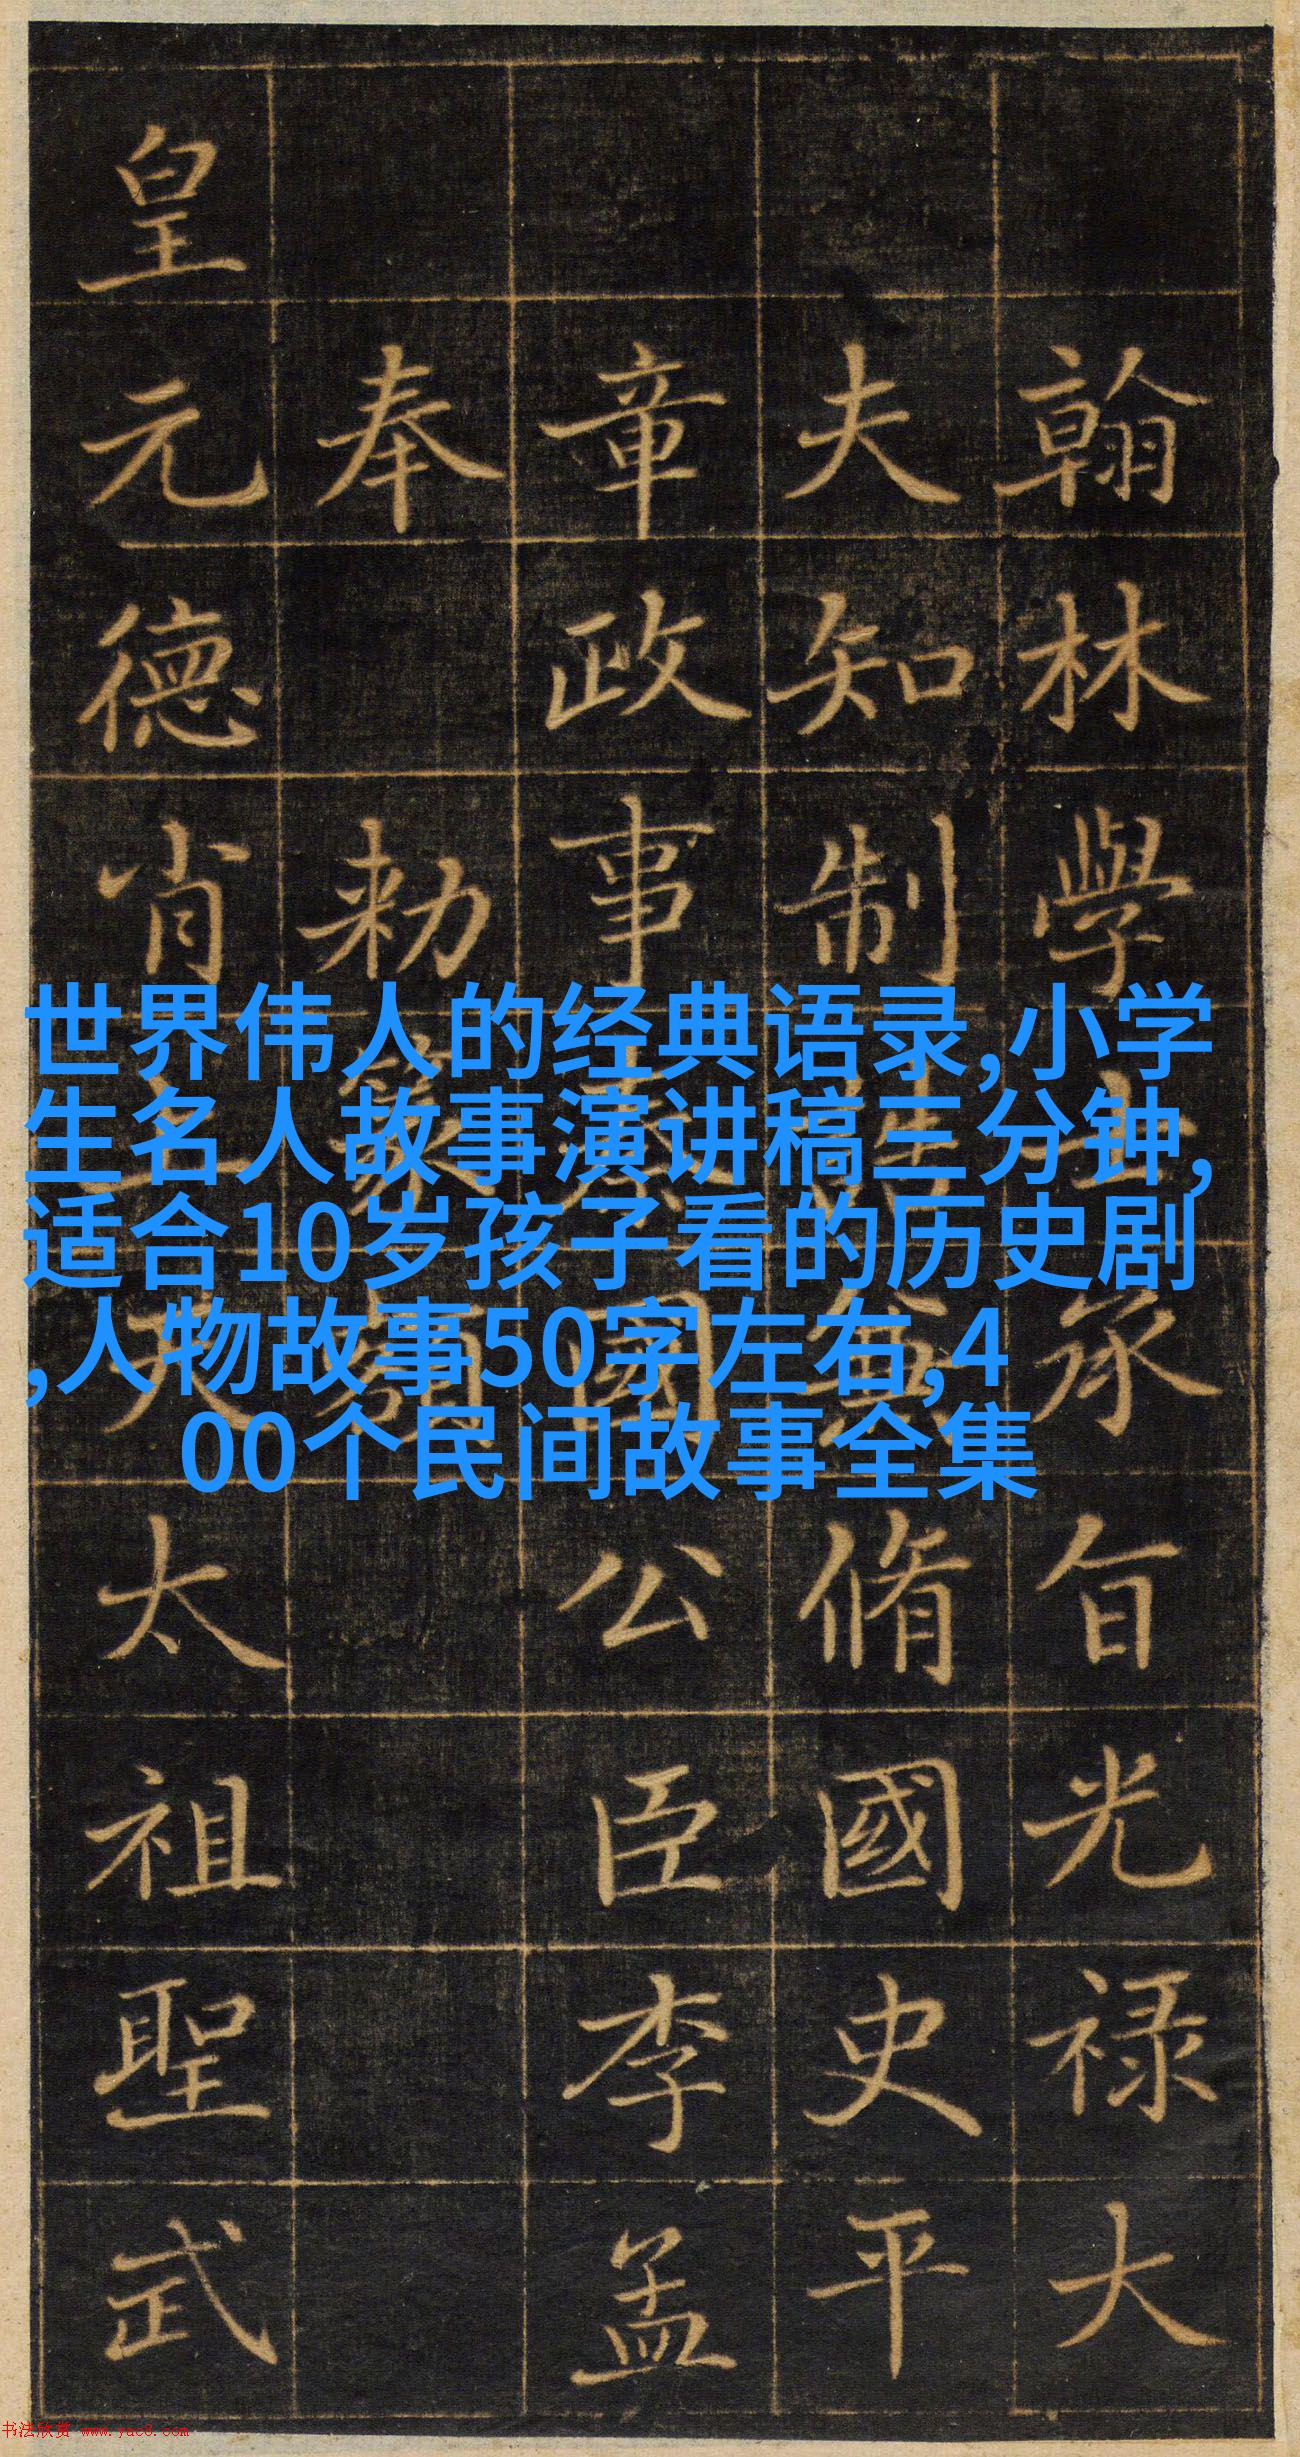 翰林學士承旨光禄大
夫知制脩國史平
章政事秦國公臣李孟
奉勑篆額
皇元德肖天太祖聖武
世界伟人的经典语录,小学
生名人故事演讲稿三分钟,
适合10岁孩子看的历史剧
,人物故事50字左右,4
00个民间故事全集
书法欣赏 www.yac8.com